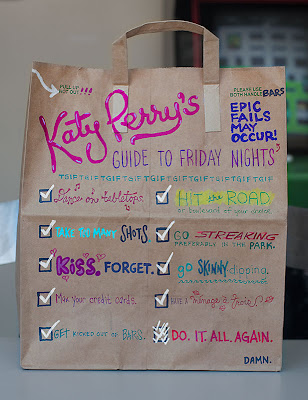 PULL UP
NOT OUT!!!
PLEASE USE
BOTH HANDLE BARS
EPIC
FAILS
MAY
OCCUR!
Katy Perry's
GUIDE TO FRIDAY NIGHTS
TGIFTGIFTGIFTGIFTGIFTGIFTGIFTGIFT
Dance on tabletops.
HIT the ROAD
or boulevard of your choice.
TAKE TOO MANY SHOTS.
GO STREAKING
PREFERABLY IN THE PARK.
KISS. FORGET.
go SKINNY dipping.
Max your credit cards.
HAVE A menage à trois
GET KICKED OUT OF BARS.
DO. IT. ALL. AGAIN.
DAMN.